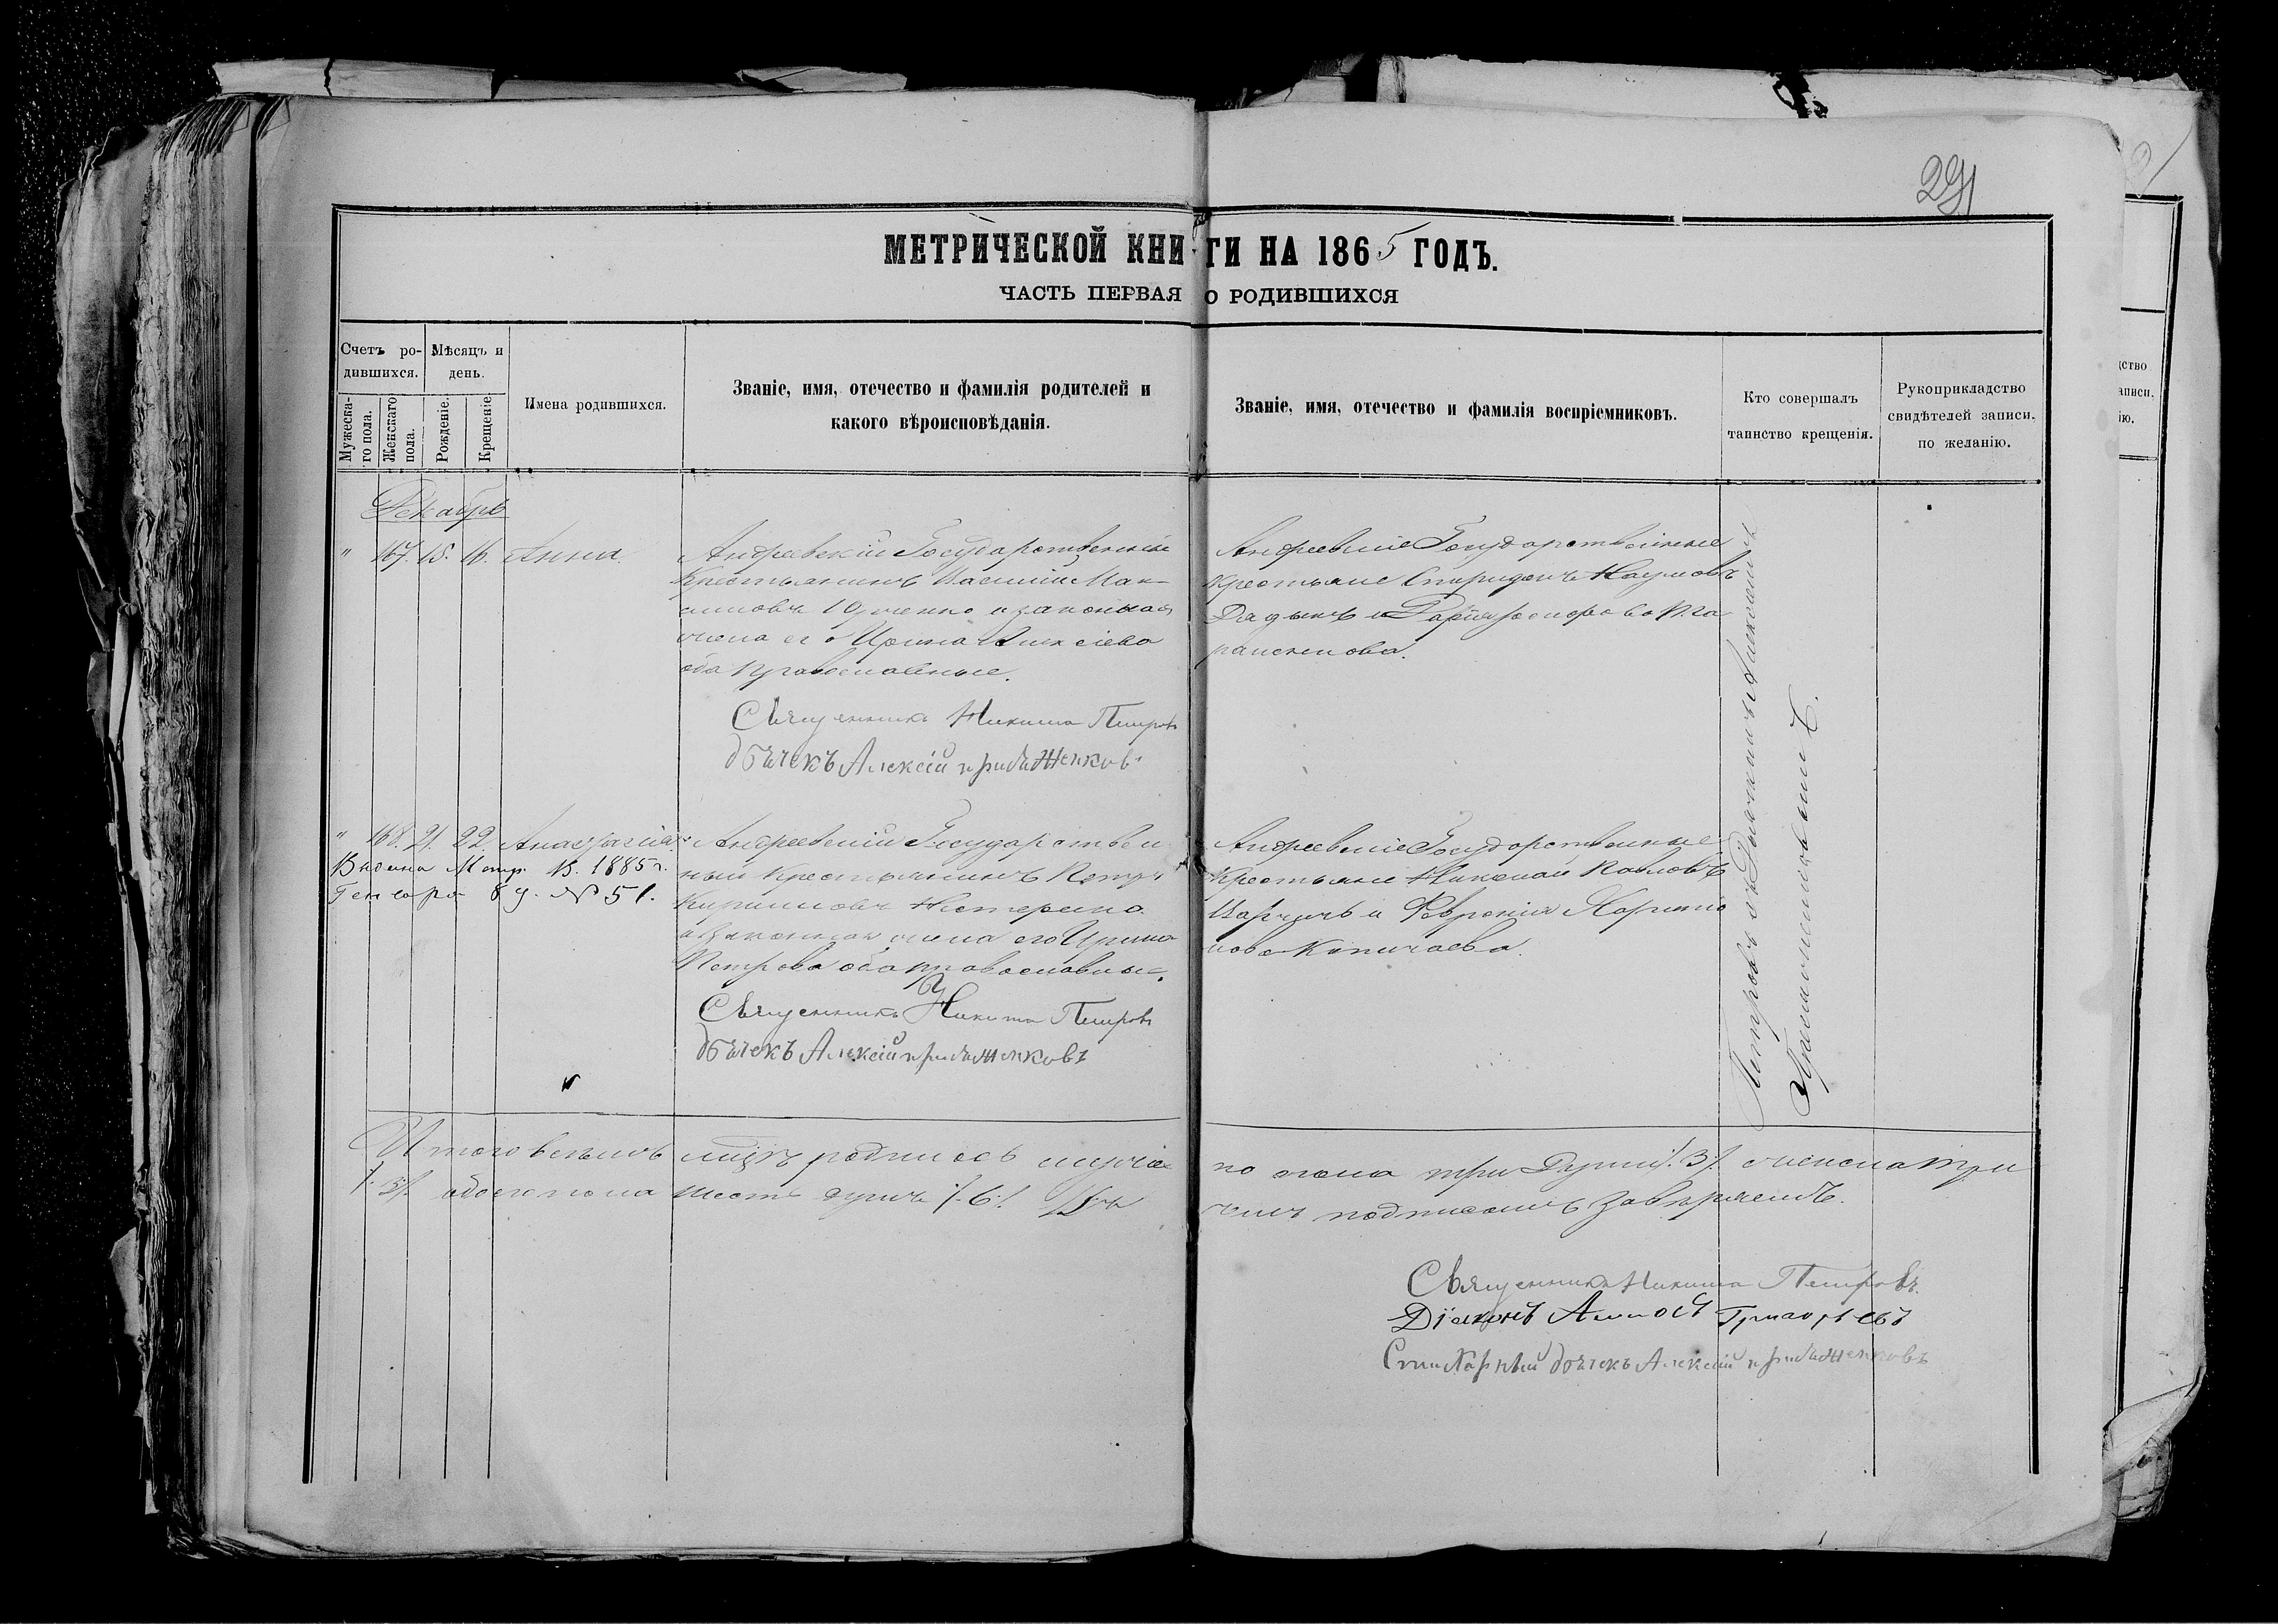 291
МЕТРИЧЕСКОЙ КНИГИ НА 1865 ГОДЪ.
ЧАСТЬ ПЕРВАЯ О РОДИВШИХСЯ
Счетъ ро-
дившихся.
Мѣсяцъ и
день.
Мужеска-
го пола.
Женскаго
пола.
Рожденіе.
Крещеніе.
Имена родившихся.
Званіе, имя, отечество и фамилія родителей и
какого вѣроисповѣданія.
Званіе, имя, отечество и фамилія воспріемниковъ.
Кто совершалъ
таинство крещенія.
Рукоприкладство
свидѣтелей записи,
по желанію.
Декабрь
" 167. 15. 16. Анна.
Андреевскій Государственный
Крестьянинъ Василій Мак-
симовъ и законная
жена его Ирина Алексіева
оба православные.
Священникъ Никита Петровъ
дьячекъ Алексій
Андреевскіе Государственные
крестьяне Спиридонъ Наумовъ
" 168. 21. 22. Анастасія
Выдана Метр. В. 1885 г.
Генваря 8 д. № 51.
Андреевскій Государствен
ный Крестьянинъ Петръ
Кириловъ Нестеренко
и законная жена его Ирина
Петрова оба православные.
Священникъ Никита Петровъ
дьячекъ Алексій
Андреевскіе Государственные
крестьяне Николай Павловъ
и Февронія Харито
нова
Петровъ съ Дьячкомъ Алексіемъ
Итого всѣхъ родилось мужес
ко пола три души /.3/. женска три
/.3/. обоего пола шесть душъ /.6./ Въ
чемъ подписомъ завѣряемъ.
Священникъ Никита Петровъ.
Діаконъ Григорьевъ
Стихарный дьячекъ Алексій